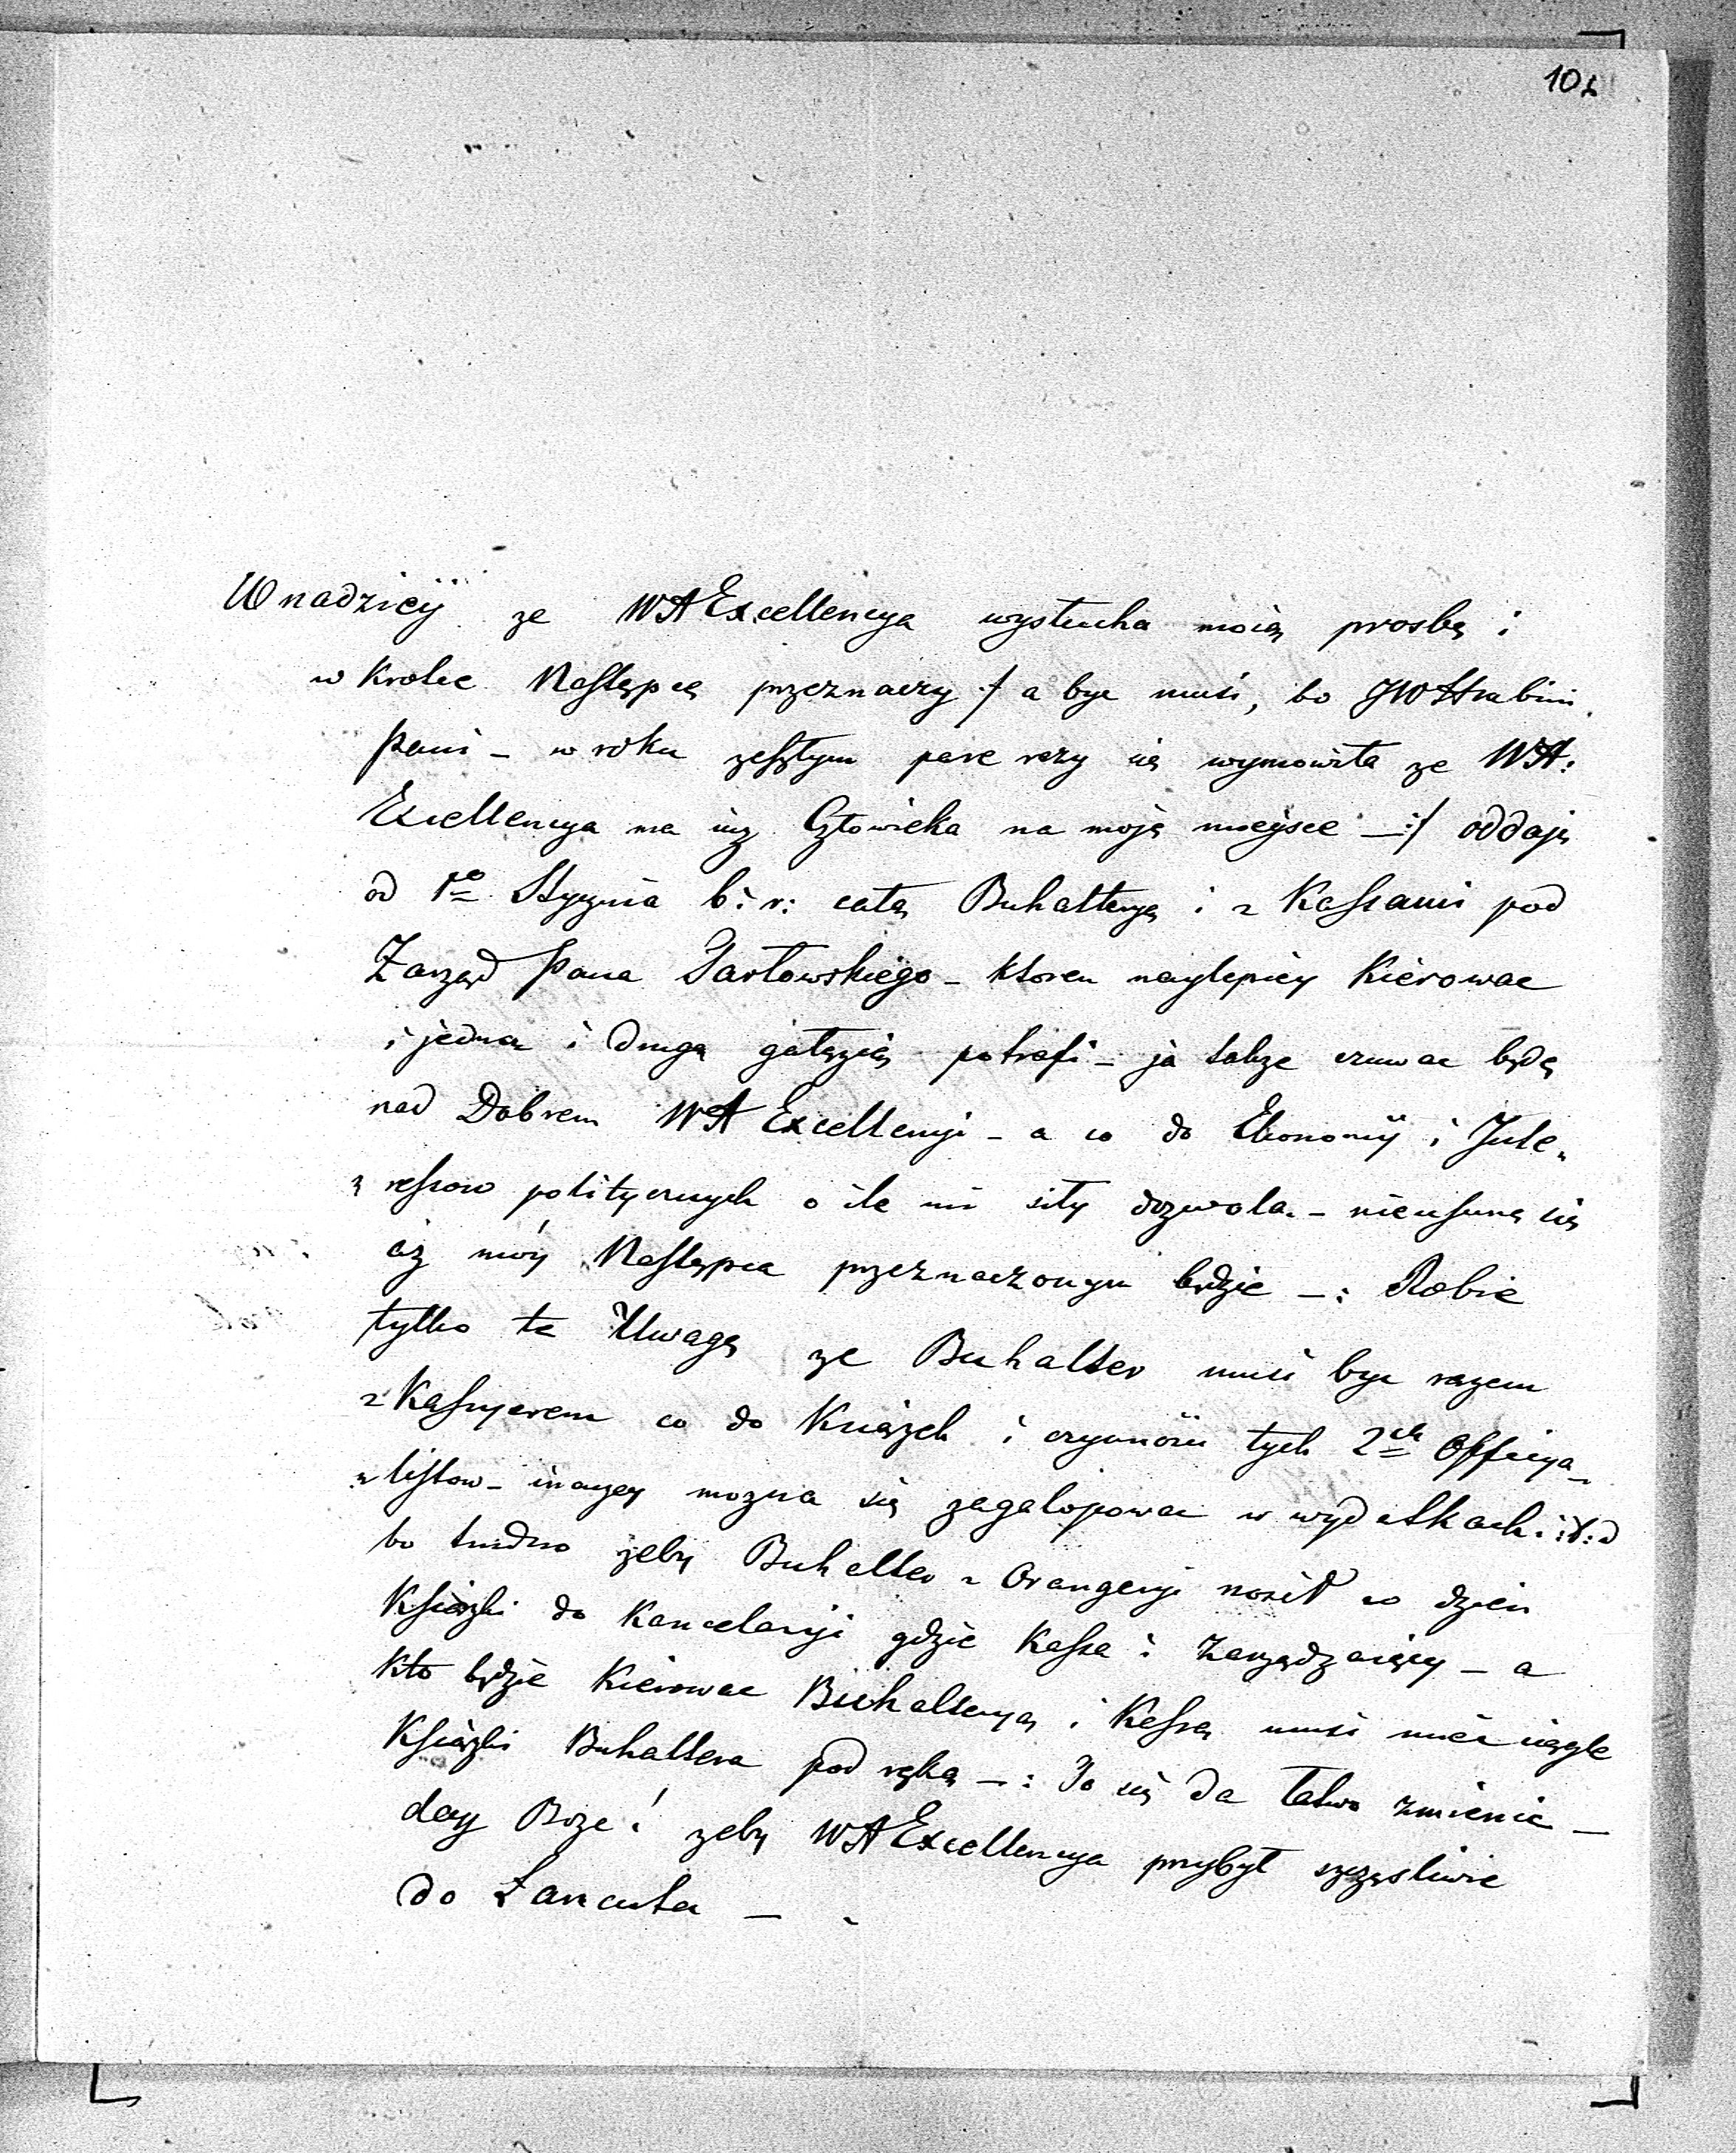 102
W nadzieij ze WH Excellencya wystucha moią prosbę i
w krotce Nastȩpcę przeznaczy :/ a byc musi, bo JW Hrabini
Pani – w roku zeszłym pare razy się wymowiła ze WH:
Excellencya ma iuz Człowieka na moję mieysce –:/ oddaję
od 1go Stycznia b: r: całą Buhalteryę i z Kassami pod
Zarząd Pana Jarłowskiego – ktoren naylepiéy Kierowac
i jedną i drugą gałęzią potrafi – ja takze czuwac będę
nad Dobrem WH Excellencyi – a co do Ekonomij i Inte„
„ressow politycznych o ile mi siły dozwolą – nieusunę się
aż móy Nastȩpca przeznaczonym będzie –: Robię
tylko tę Uwagę ze Buhalter musi byc razem
z Kassyerem co do Książek i czynnosci tych 2ch Officya„
„listow – inaczey mozna się zagalopowac w wydatkach i: t: d
bo trudno żeby Buhalter z Orangeryi nosił co dzien
Książki do Kancelaryi gdzie Kassa i Zarządzaiący – a
kto będzie Kierowac Buhalteryą i Kassą musi miec ciągle
Książki Buhaltera pod ręką –: To się da łatwo zmienic –
day Boze! zeby WH Excellencya przybył szczęsliwie
do Łancuta –